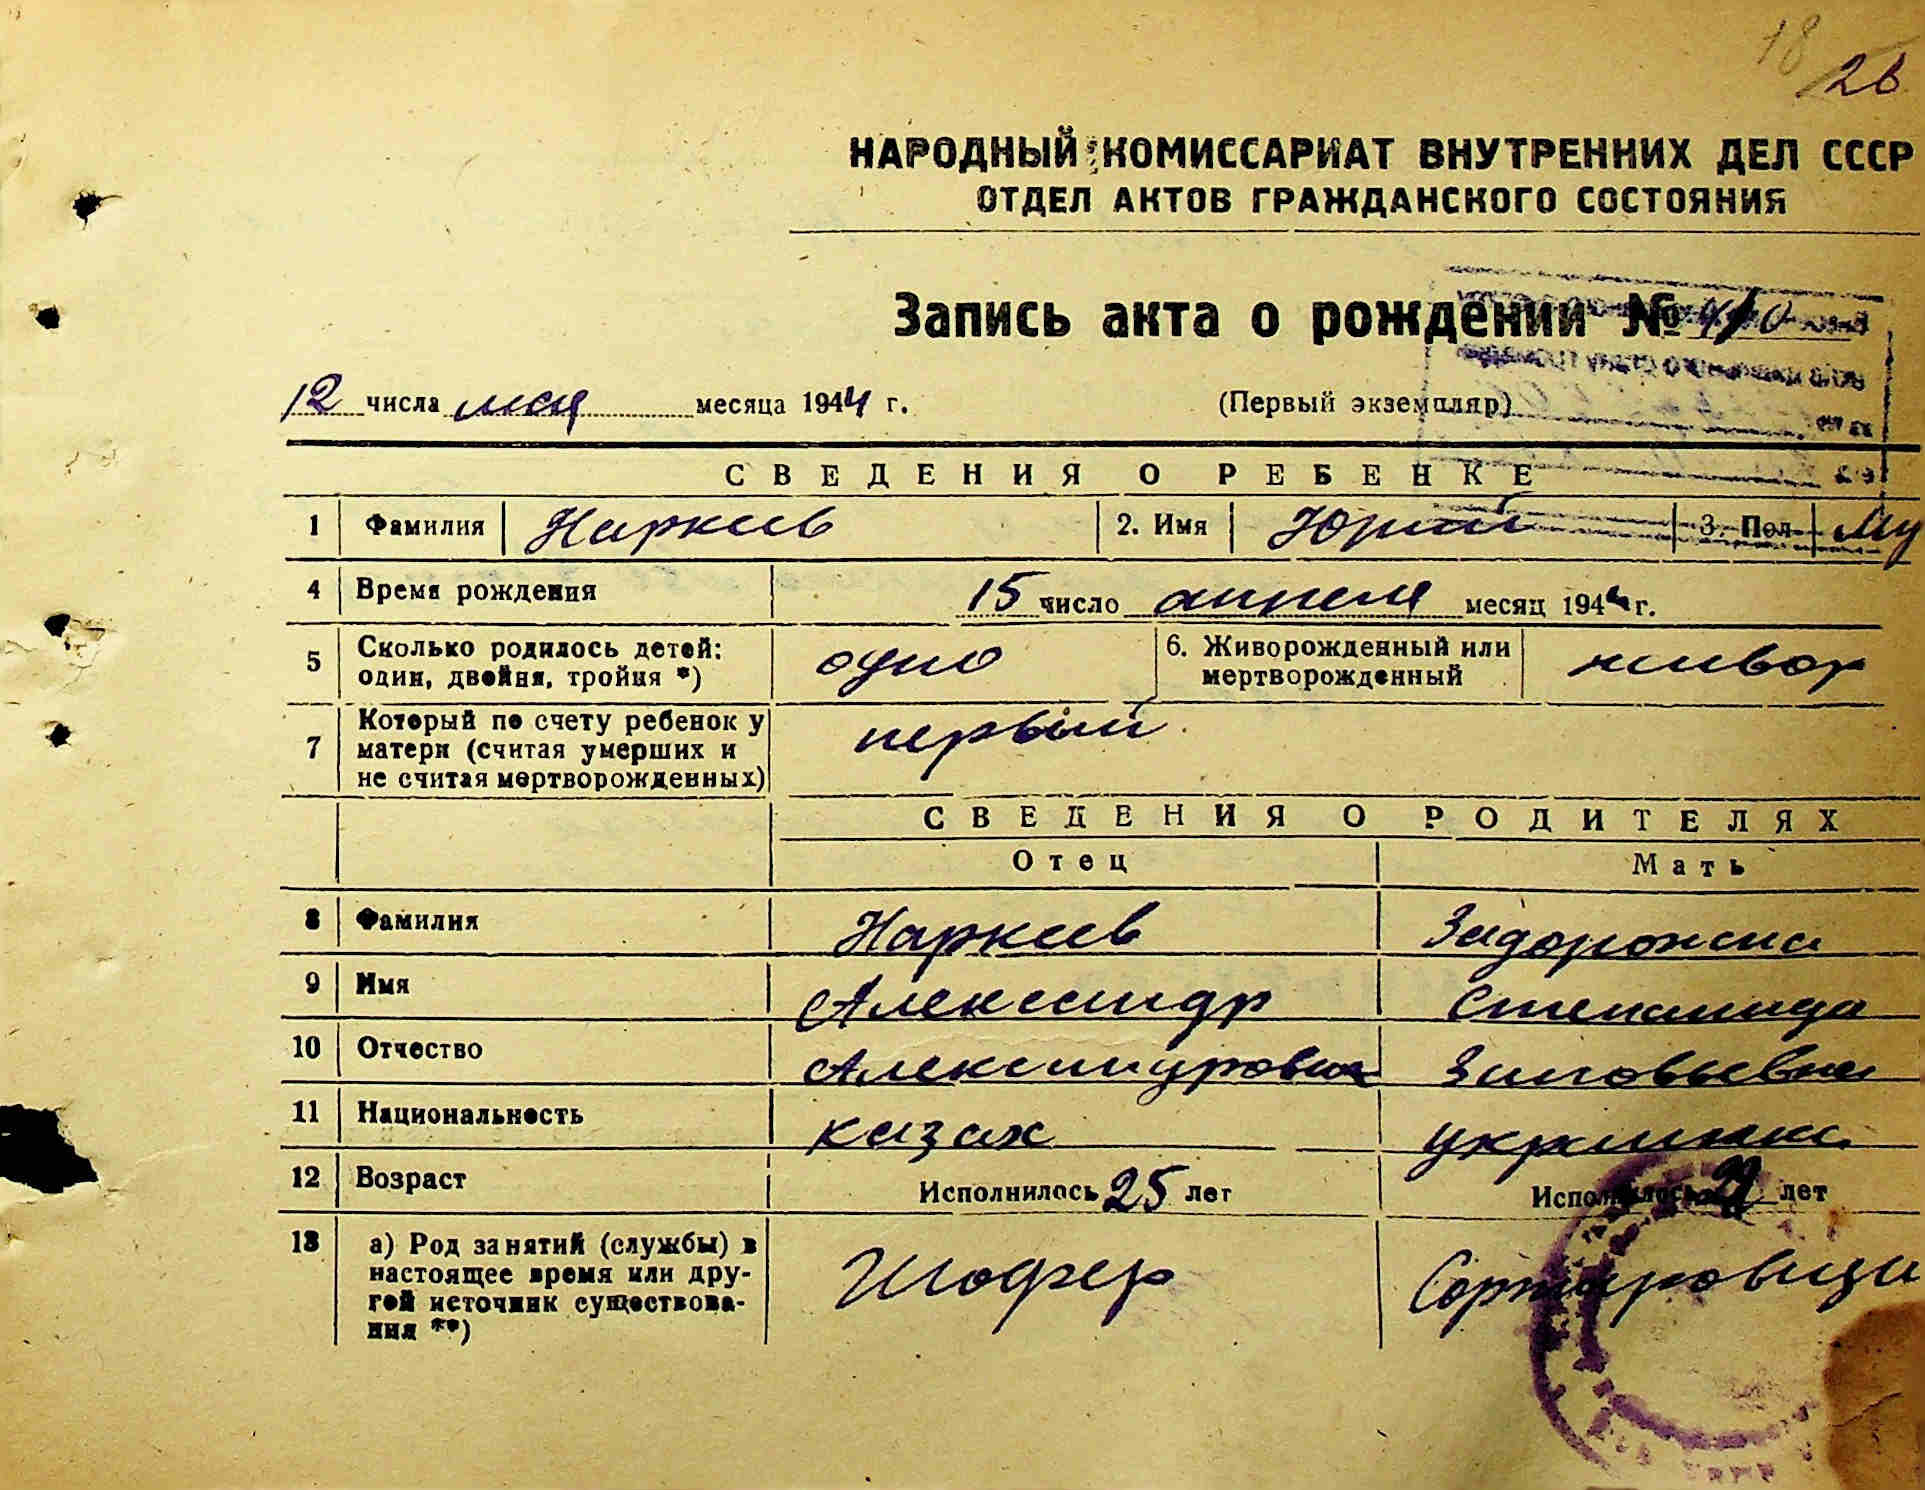 18
26
НАРОДНЫЙ КОМИССАРИАТ ВНУТРЕННИХ ДЕЛ СССР
ОТДЕЛ АКТОВ ГРАЖДАНСКОГО СОСТОЯНИЯ
Запись акта о рождении № 410
12 числа мая месяца 1944 г. (Первый экземпляр)
СВЕДЕНИЯ О РЕБЕНКЕ
1 Фамилия Наркеев 2. Имя Юрий 3. Пол Му
4 Время рождения 15 число апреля месяц 1944 г.
5 Сколько родилось детей: один, двойня, тройня *) одно 6. Живорожденный или мертворожденный живор
7 Который по счету ребенок у матери (считая умерших и не считая мертворожденных) первый
СВЕДЕНИЯ О РОДИТЕЛЯХ
Отец Мать
8 Фамилия Наркеев Задорожна
9 Имя Александр Степанида
10 Отчество Александрович Зиновьевна
11 Национальность казах украинка
12 Возраст Исполнилось 25 лет Исполнилось лет
13 а) Род занятий (службы) в настоящее время или другой источник существования **) Шофер Сортировщи